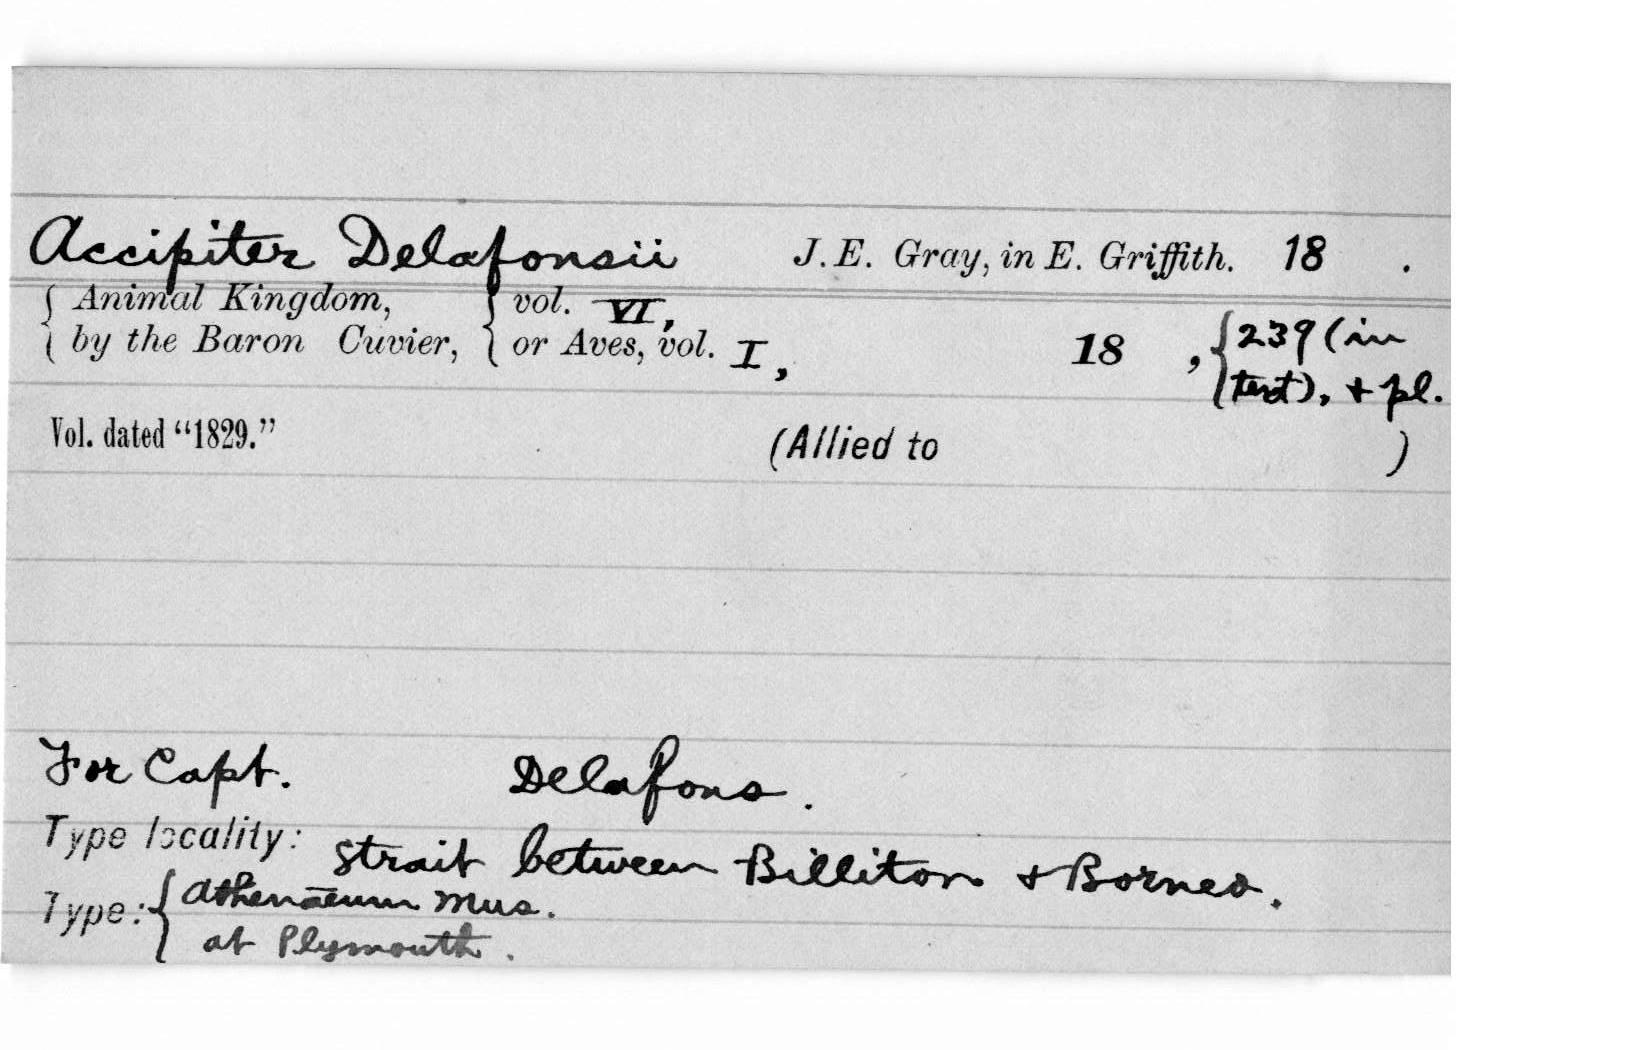 Accipiter Delafonsii J. E. Gray, in E. Griffith. 18 .
{ Animal Kingdom, { vol. VI,
{ by the Baron Cuvier, { or Aves, vol. I, 18 , { 239 (in
{ text), + pl.
Vol. dated “1829.” (Allied to )
For Capt. Delafons.
Type locality: Strait between Billiton + Borneo.
Type: { Athenæum Mus.
at Plymouth.